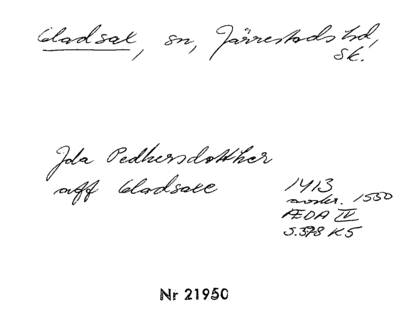 Gladsax, sn, Järrestads hd,
Sk.
Jda Pedhersdotther
aff Gladsaxe
1413
avskr. 1550
ÆDA IV
S. 378 K5
Nr 21950